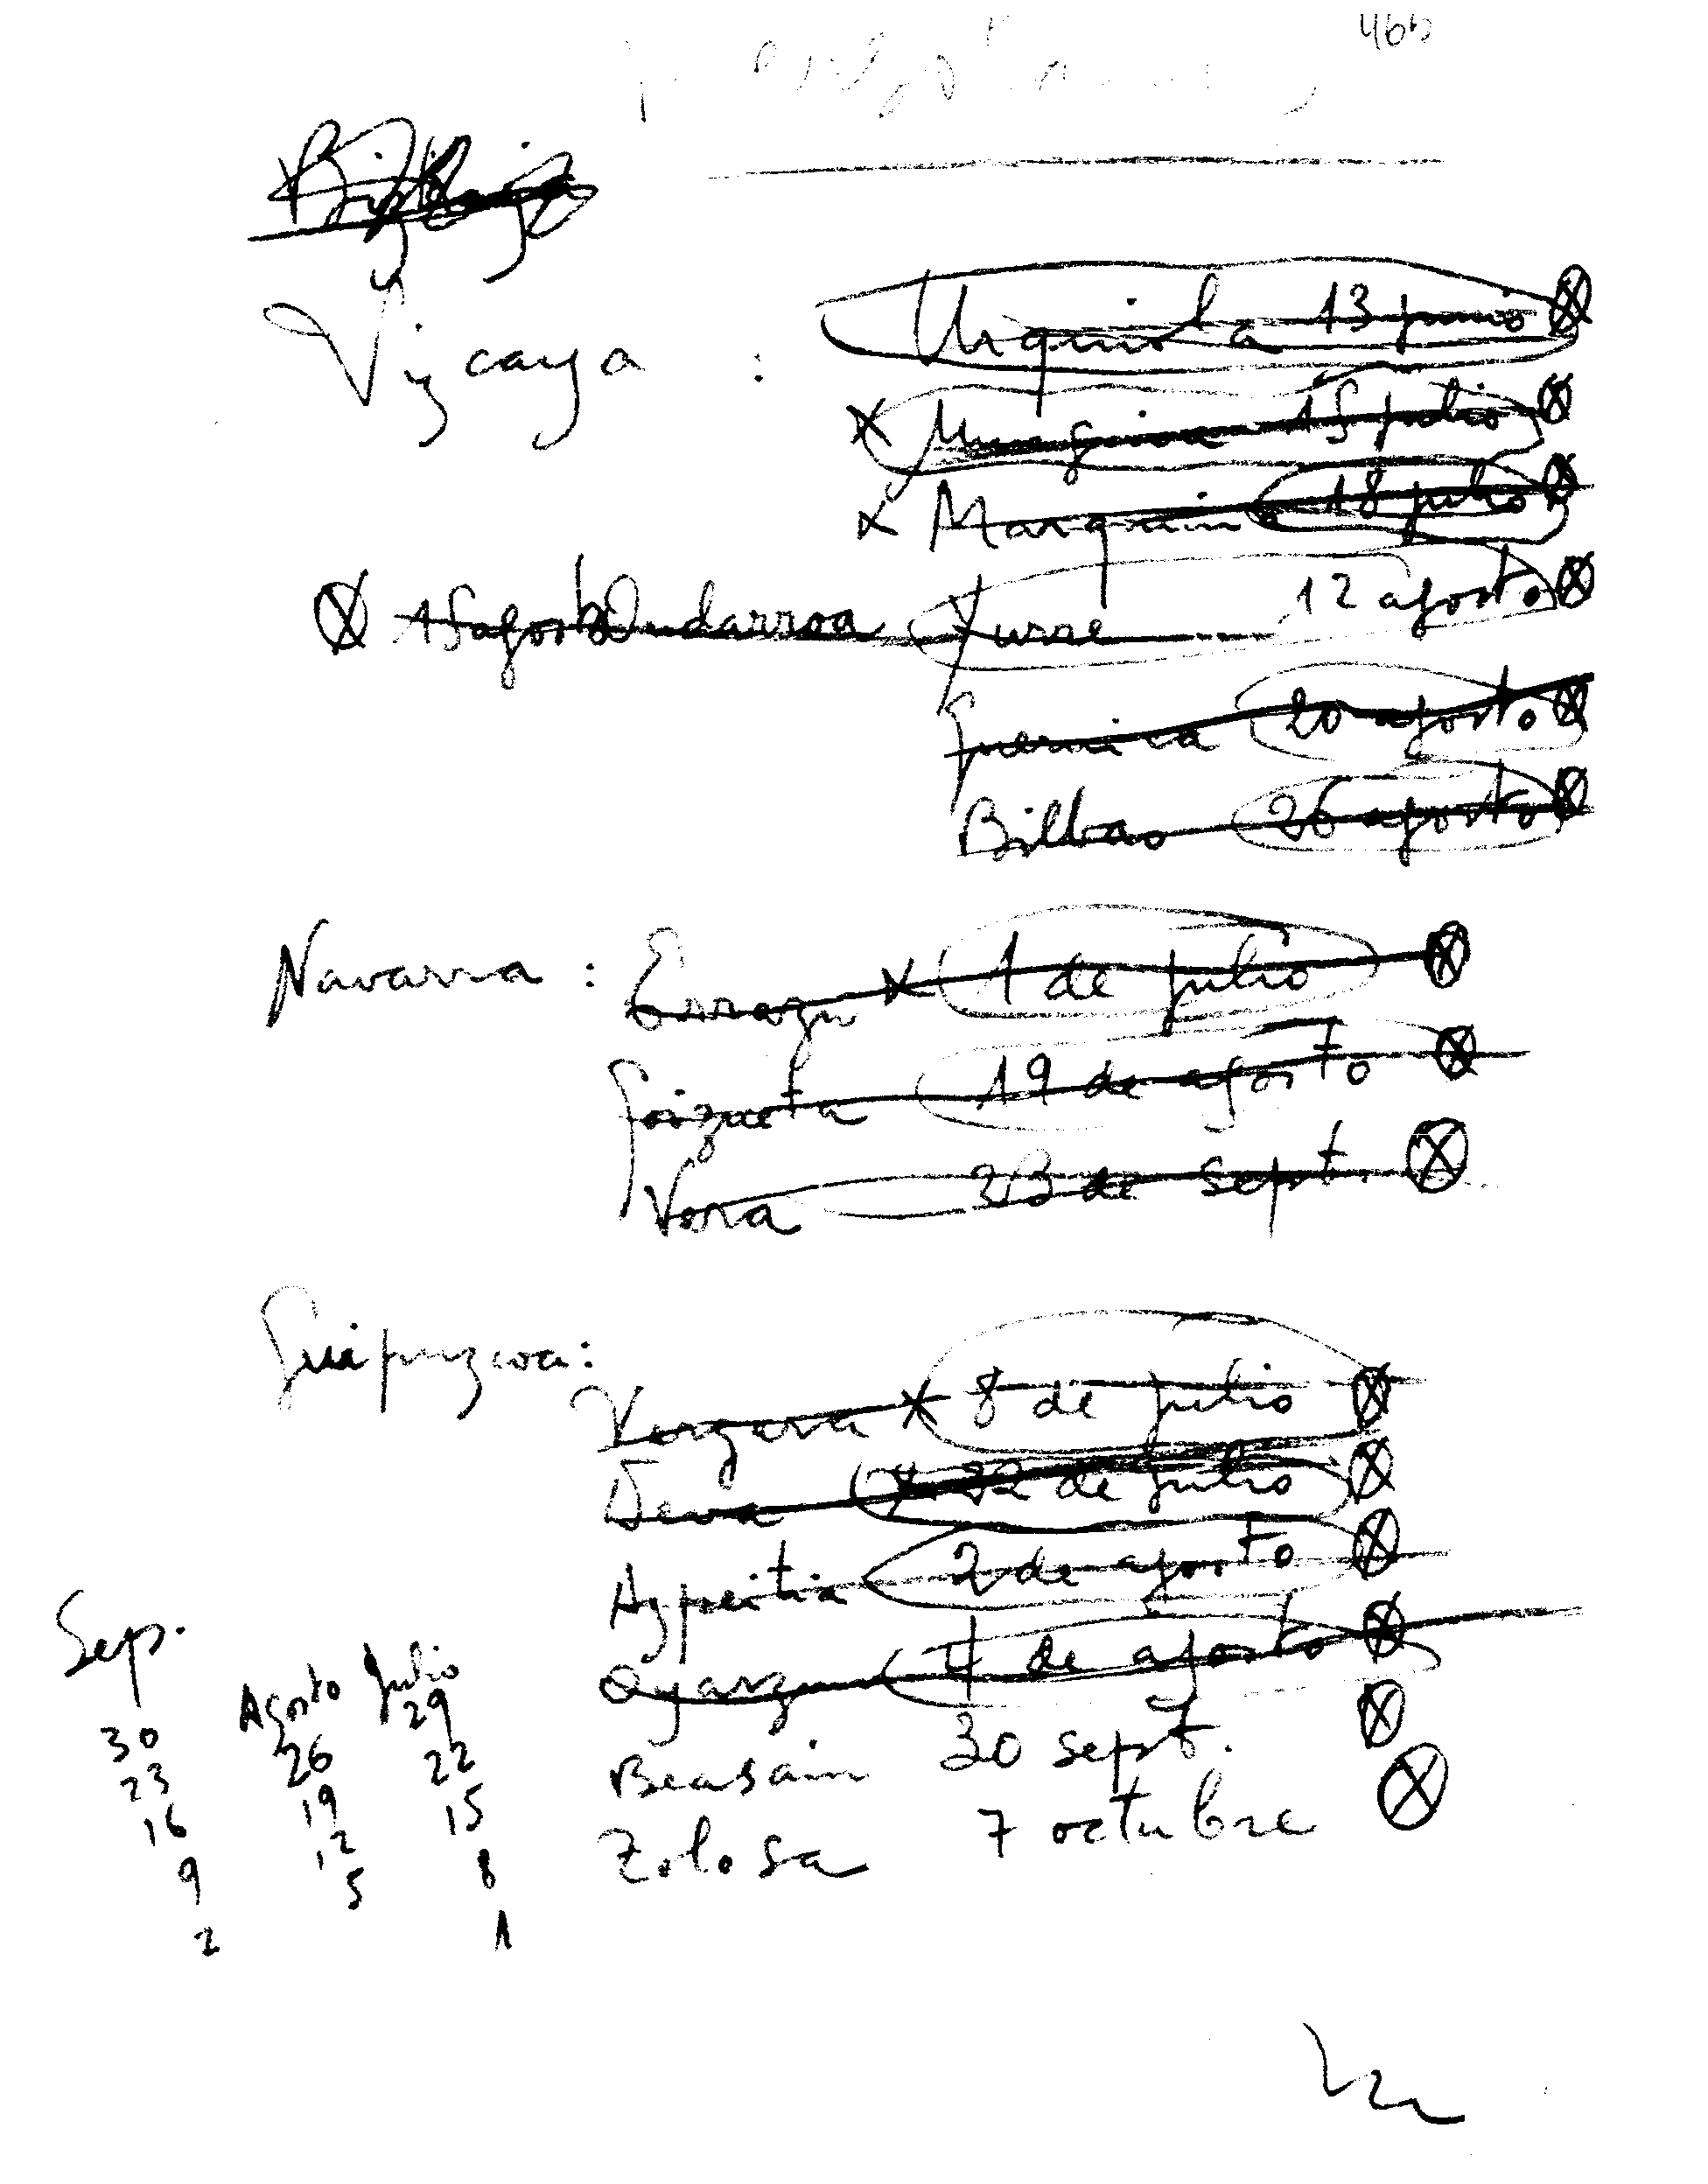 Vizcaya : Urquiola 13 junio
15 julio
x Marquina 18 julio
15 agosto Ondarroa Yurre 12 agosto
Guernica 20 agosto
Bilbao 26 agosto
Navarra : Errazu x 1 de julio
Goizueta 19 de agosto
Vera 23 de sept.
Guipuzcoa :
Vergara x 8 de julio
Deva x 22 de julio
Azpeitia 2 de agosto
Oyarzun 4 de agosto
Beasain 30 sept.
Tolosa 7 octubre
Sep. Agosto Julio
30 26 29
23 19 22
16 12 15
9 5 8
2 1